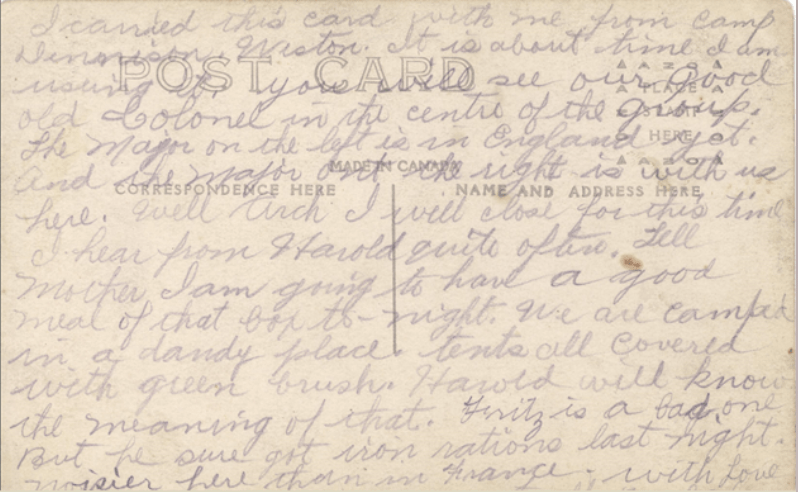 I carried this card with me from Camp
Dennison, Weston. It is about time I am
using it. you will see our good
old Colonel in the centre of the group.
The Major on the left is in England yet.
and the Major on the right is with us
here. Well Arch I will close for this time
I hear from Harold quite often. Tell
Mother I am going to have a good
meal of that box to-night. We are camped
in a dandy place. tents all covered
with green brush. Harold will know
the meaning of that. Fritz is a bad one
But he sure got iron rations last night.
noisier here than in France. with Love
POST CARD
AZO
PLACE
STAMP
HERE
AZO
MADE IN CANADA
CORRESPONDENCE HERE
NAME AND ADDRESS HERE